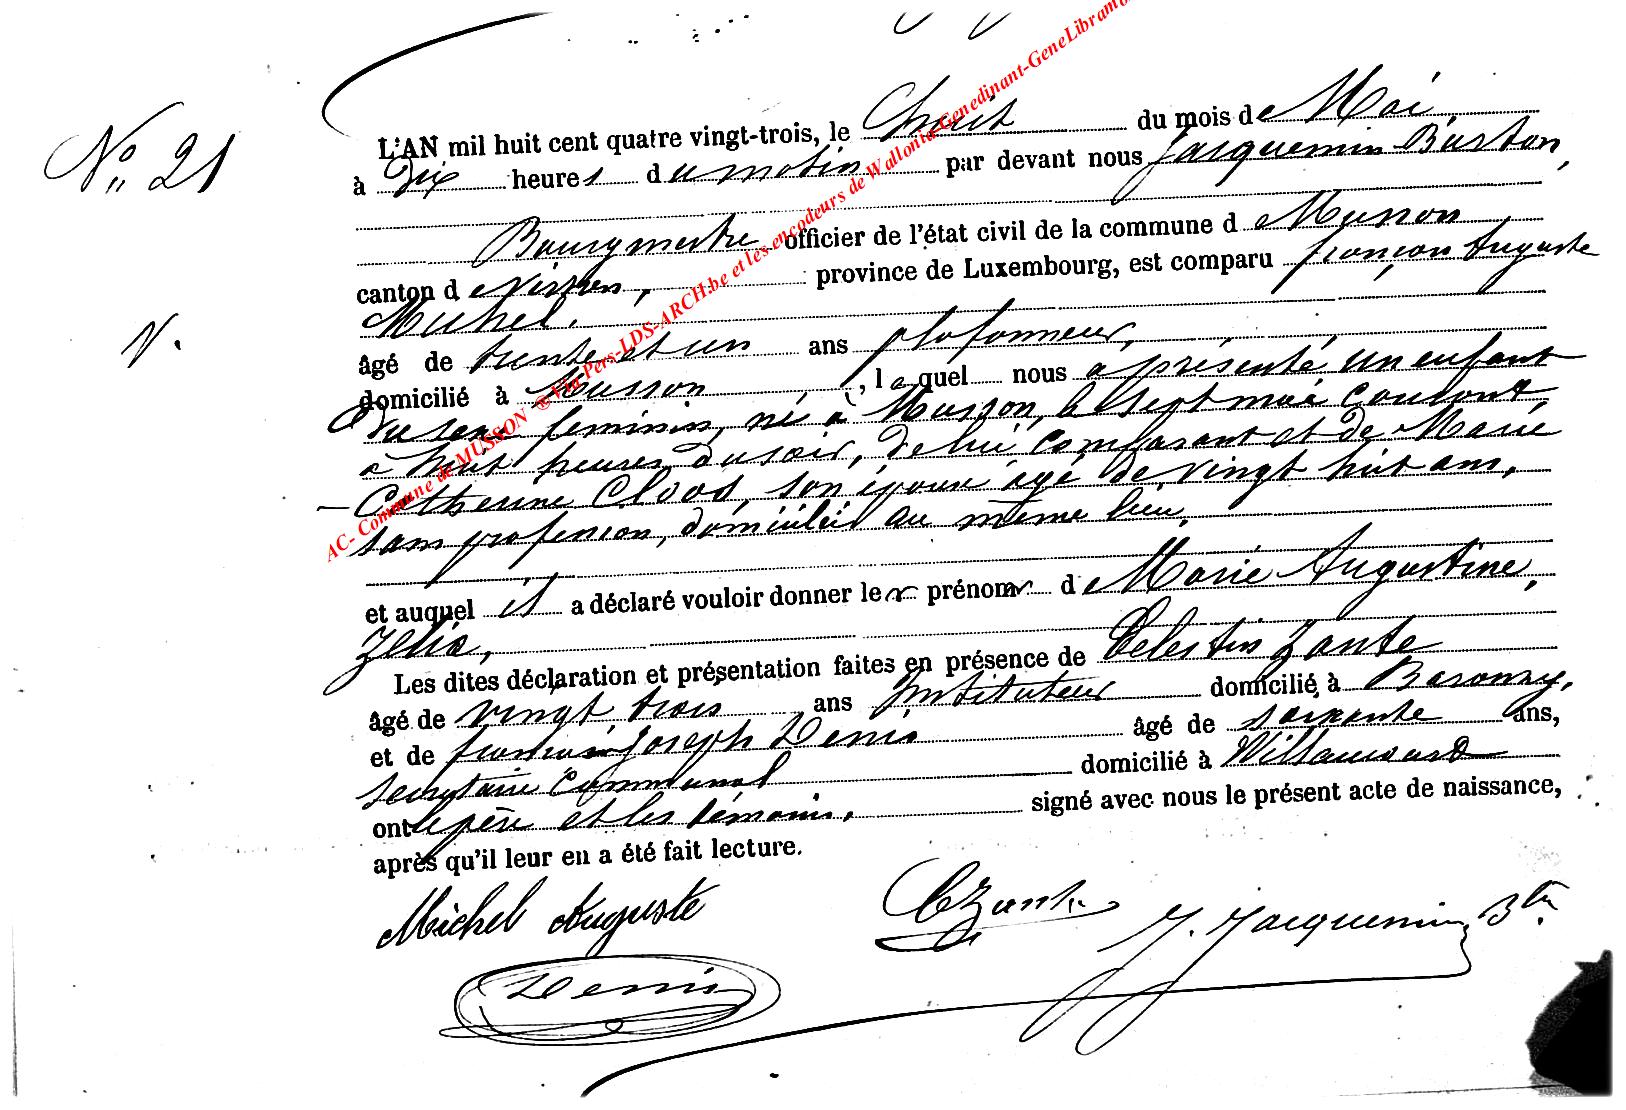 L'AN mil huit cent quatre vingt-trois, le huit du mois de Mai,
N° 21
à Dix heures du matin par devant nous Jacquemin Buston,
Bourgmestre officier de l'état civil de la commune d Musson
canton d e Virton, province de Luxembourg, est comparu françois Auguste
Michel.
V.
âgé de trente et un ans plafonneur,
domicilié à Musson, lequel nous a présenté un enfant
Du sexe féminin, né à Musson, le sept mai courant,
à huit heures du soir, de lui comparant et de Marie
Catherine Cloos, son épouse âgé de vingt huit ans,
sans profession, domiciliés au même lieu,
et auquel il a déclaré vouloir donner les prénoms de Marie Augustine,
Zélia,
Les dites déclaration et présentation faites en présence de Celestin Zante
âgé de vingt trois ans Instituteur domicilié à Baronzy,
et de françois Joseph Denis âgé de soixante ans,
secrétaire communal domicilié à Willancourt
ont le père et les témoins, signé avec nous le présent acte de naissance,
après qu'il leur en a été fait lecture.
Michel Auguste CZante J. Jacquemin Bton
Denis
AC- Commune de MUSSON ® Via Pers-LDS-ARCH.be et les encodeurs de Wallonia-Genedinant-GeneLibramo